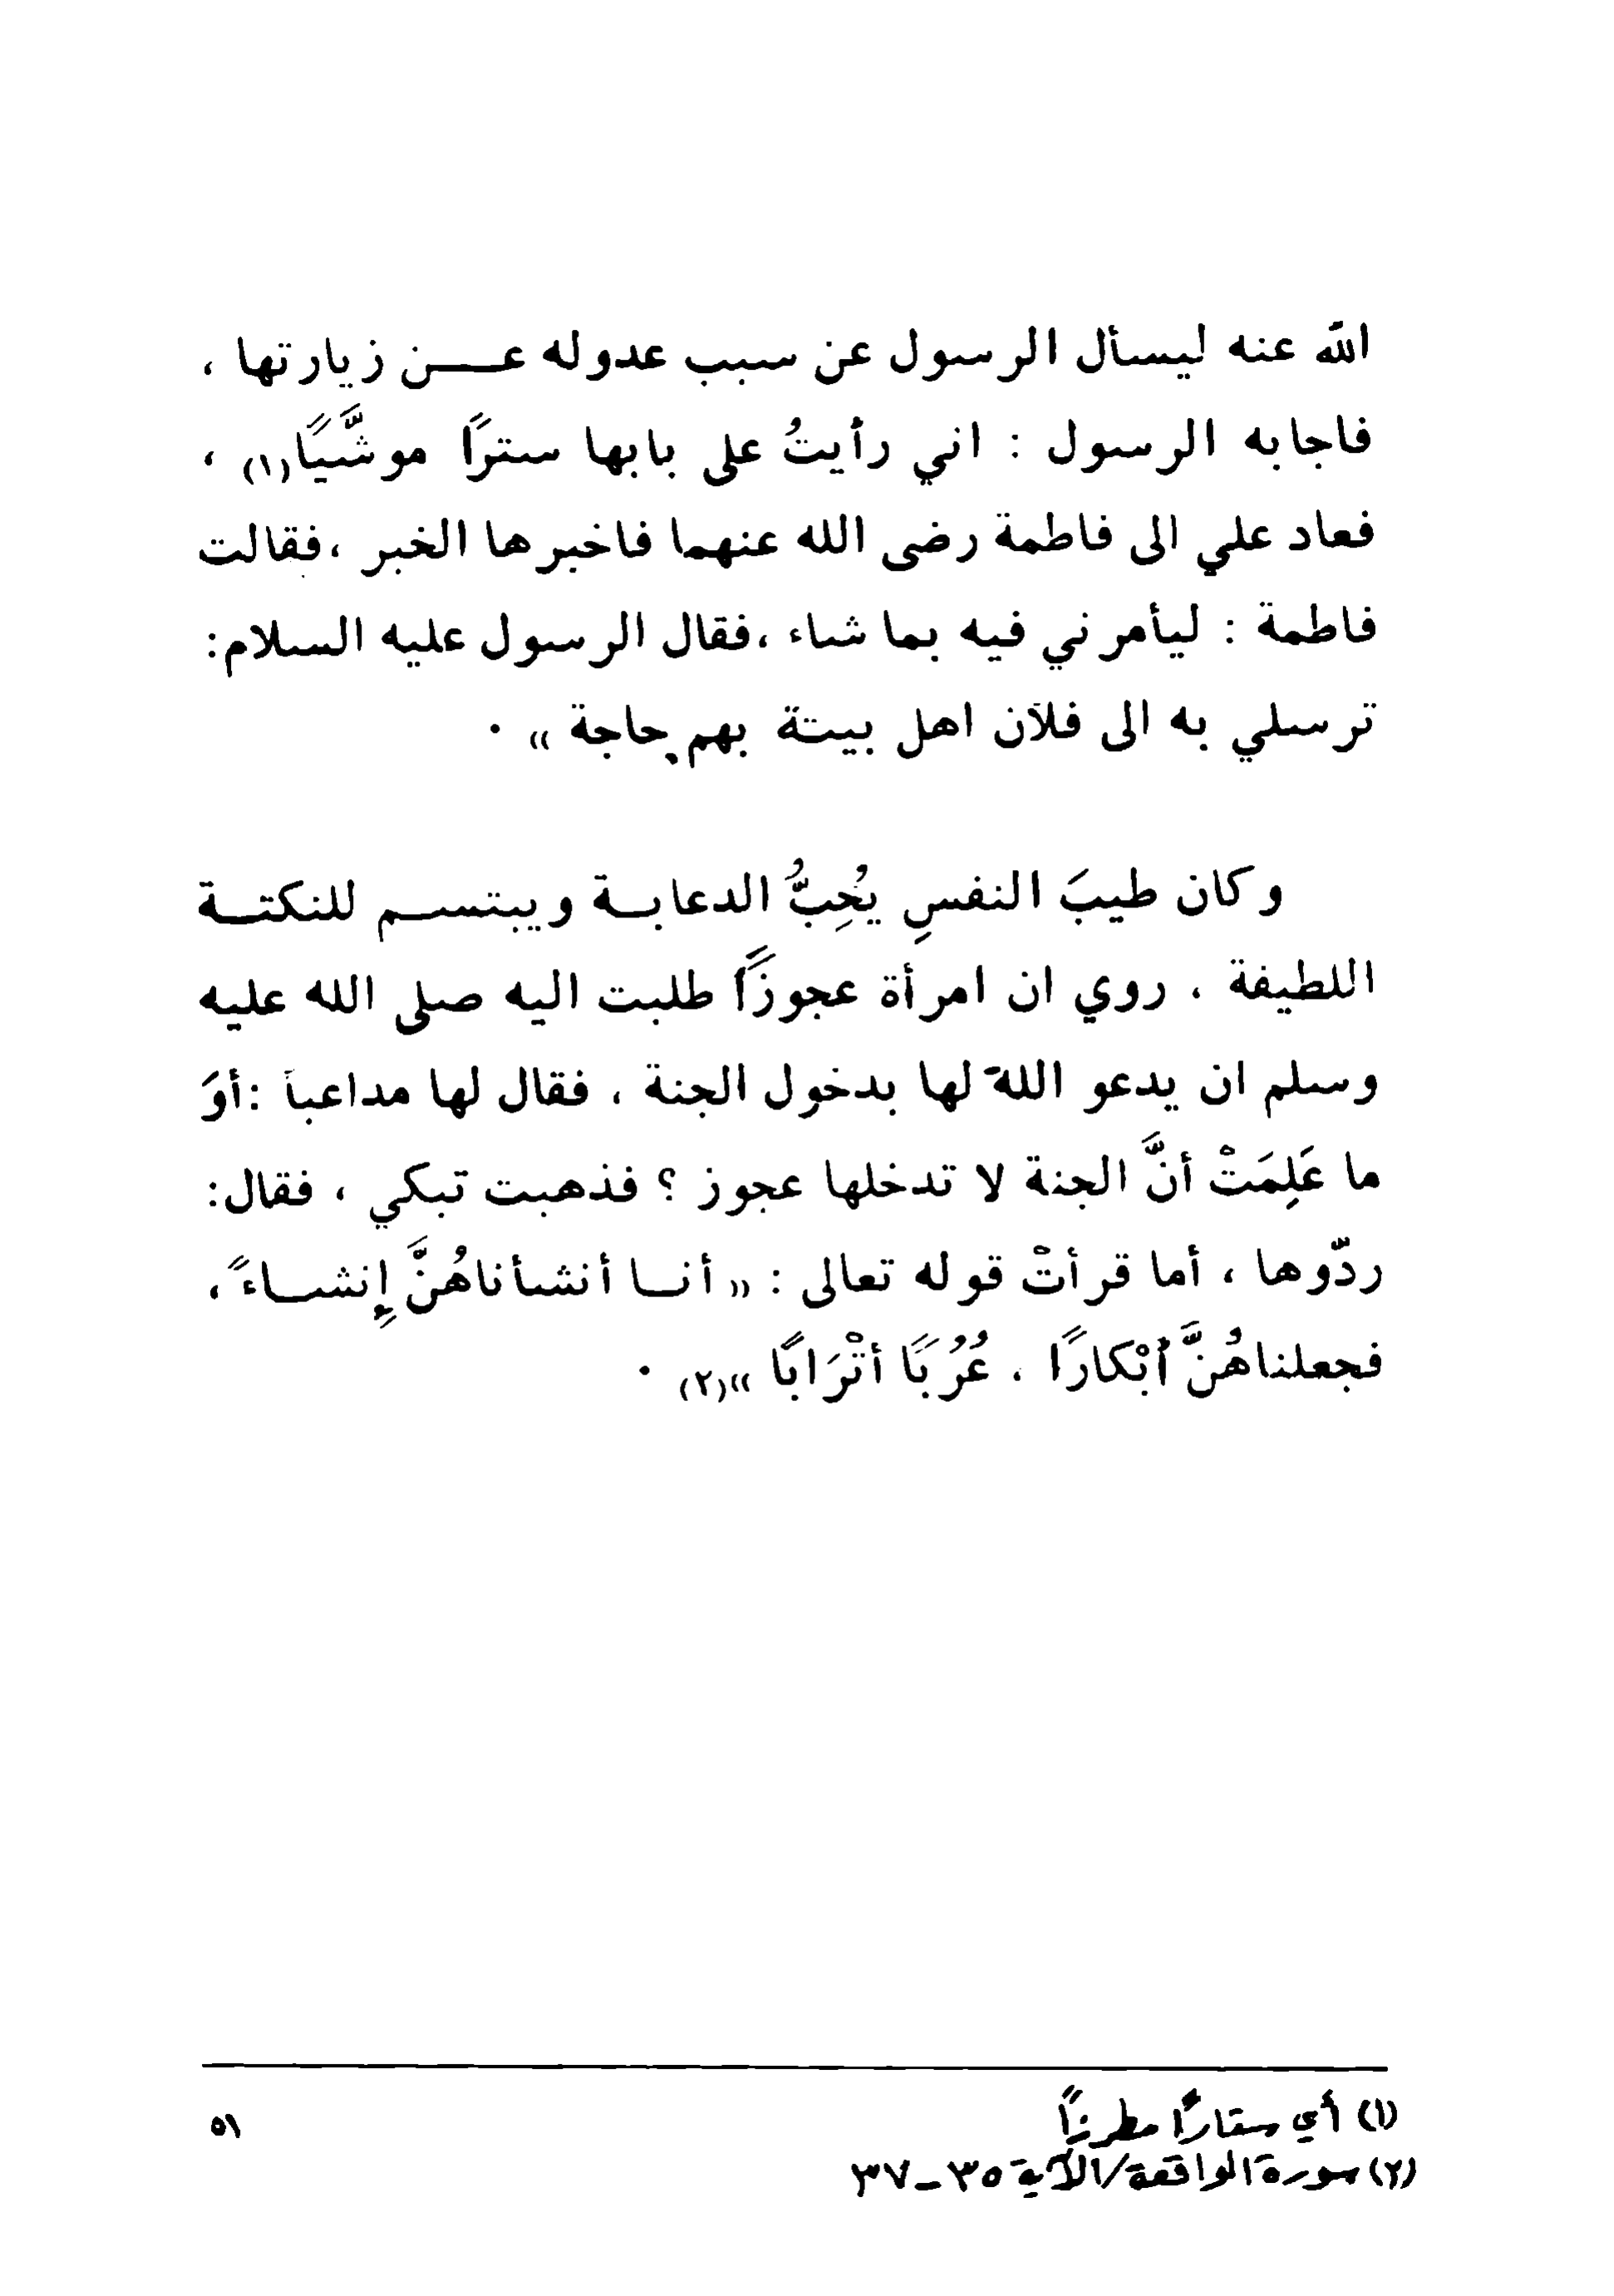 الله عنه ليسأل الرسول عن سبب عدوله عـــن زيارتها ،
فاجابه الرسول : اني رأيتُ على بابها سترًا موشَّيًا(١) ،
فعاد علي الى فاطمة رضى الله عنهما فاخبرها الخبر ،فقالت
فاطمة : ليأمرني فيه بما شاء ،فقال الرسول عليه السلام:
ترسلي به الى فلان اهل بيتة بهم حاجة » ٠
وكان طيبَ النفسِ يُحِبُّ الدعابـة ويبتســم للنكتـة
اللطيفة ، روي ان امرأة عجوزًا طلبت اليه صلى الله عليه
وسلم ان يدعو اللهَ لها بدخول الجنة ، فقال لها مداعباً :أوَ
ما عَلِمَتْ أنَّ الجنة لا تدخلها عجوز ؟ فذهبت تبكي ، فقال:
ردّوها ، أما قرأتْ قوله تعالى : « أنـا أنشأناهُنَّ إِنشـاءً ،
فجعلناهُنَّ أَبْكارًا ، عُرُبًا أتْرَابًا »(٢) ٠
(١) أي ستارًا مطرزاً
(٢) سورة الواقعة/الآية ٣٥-٣٧
٥١